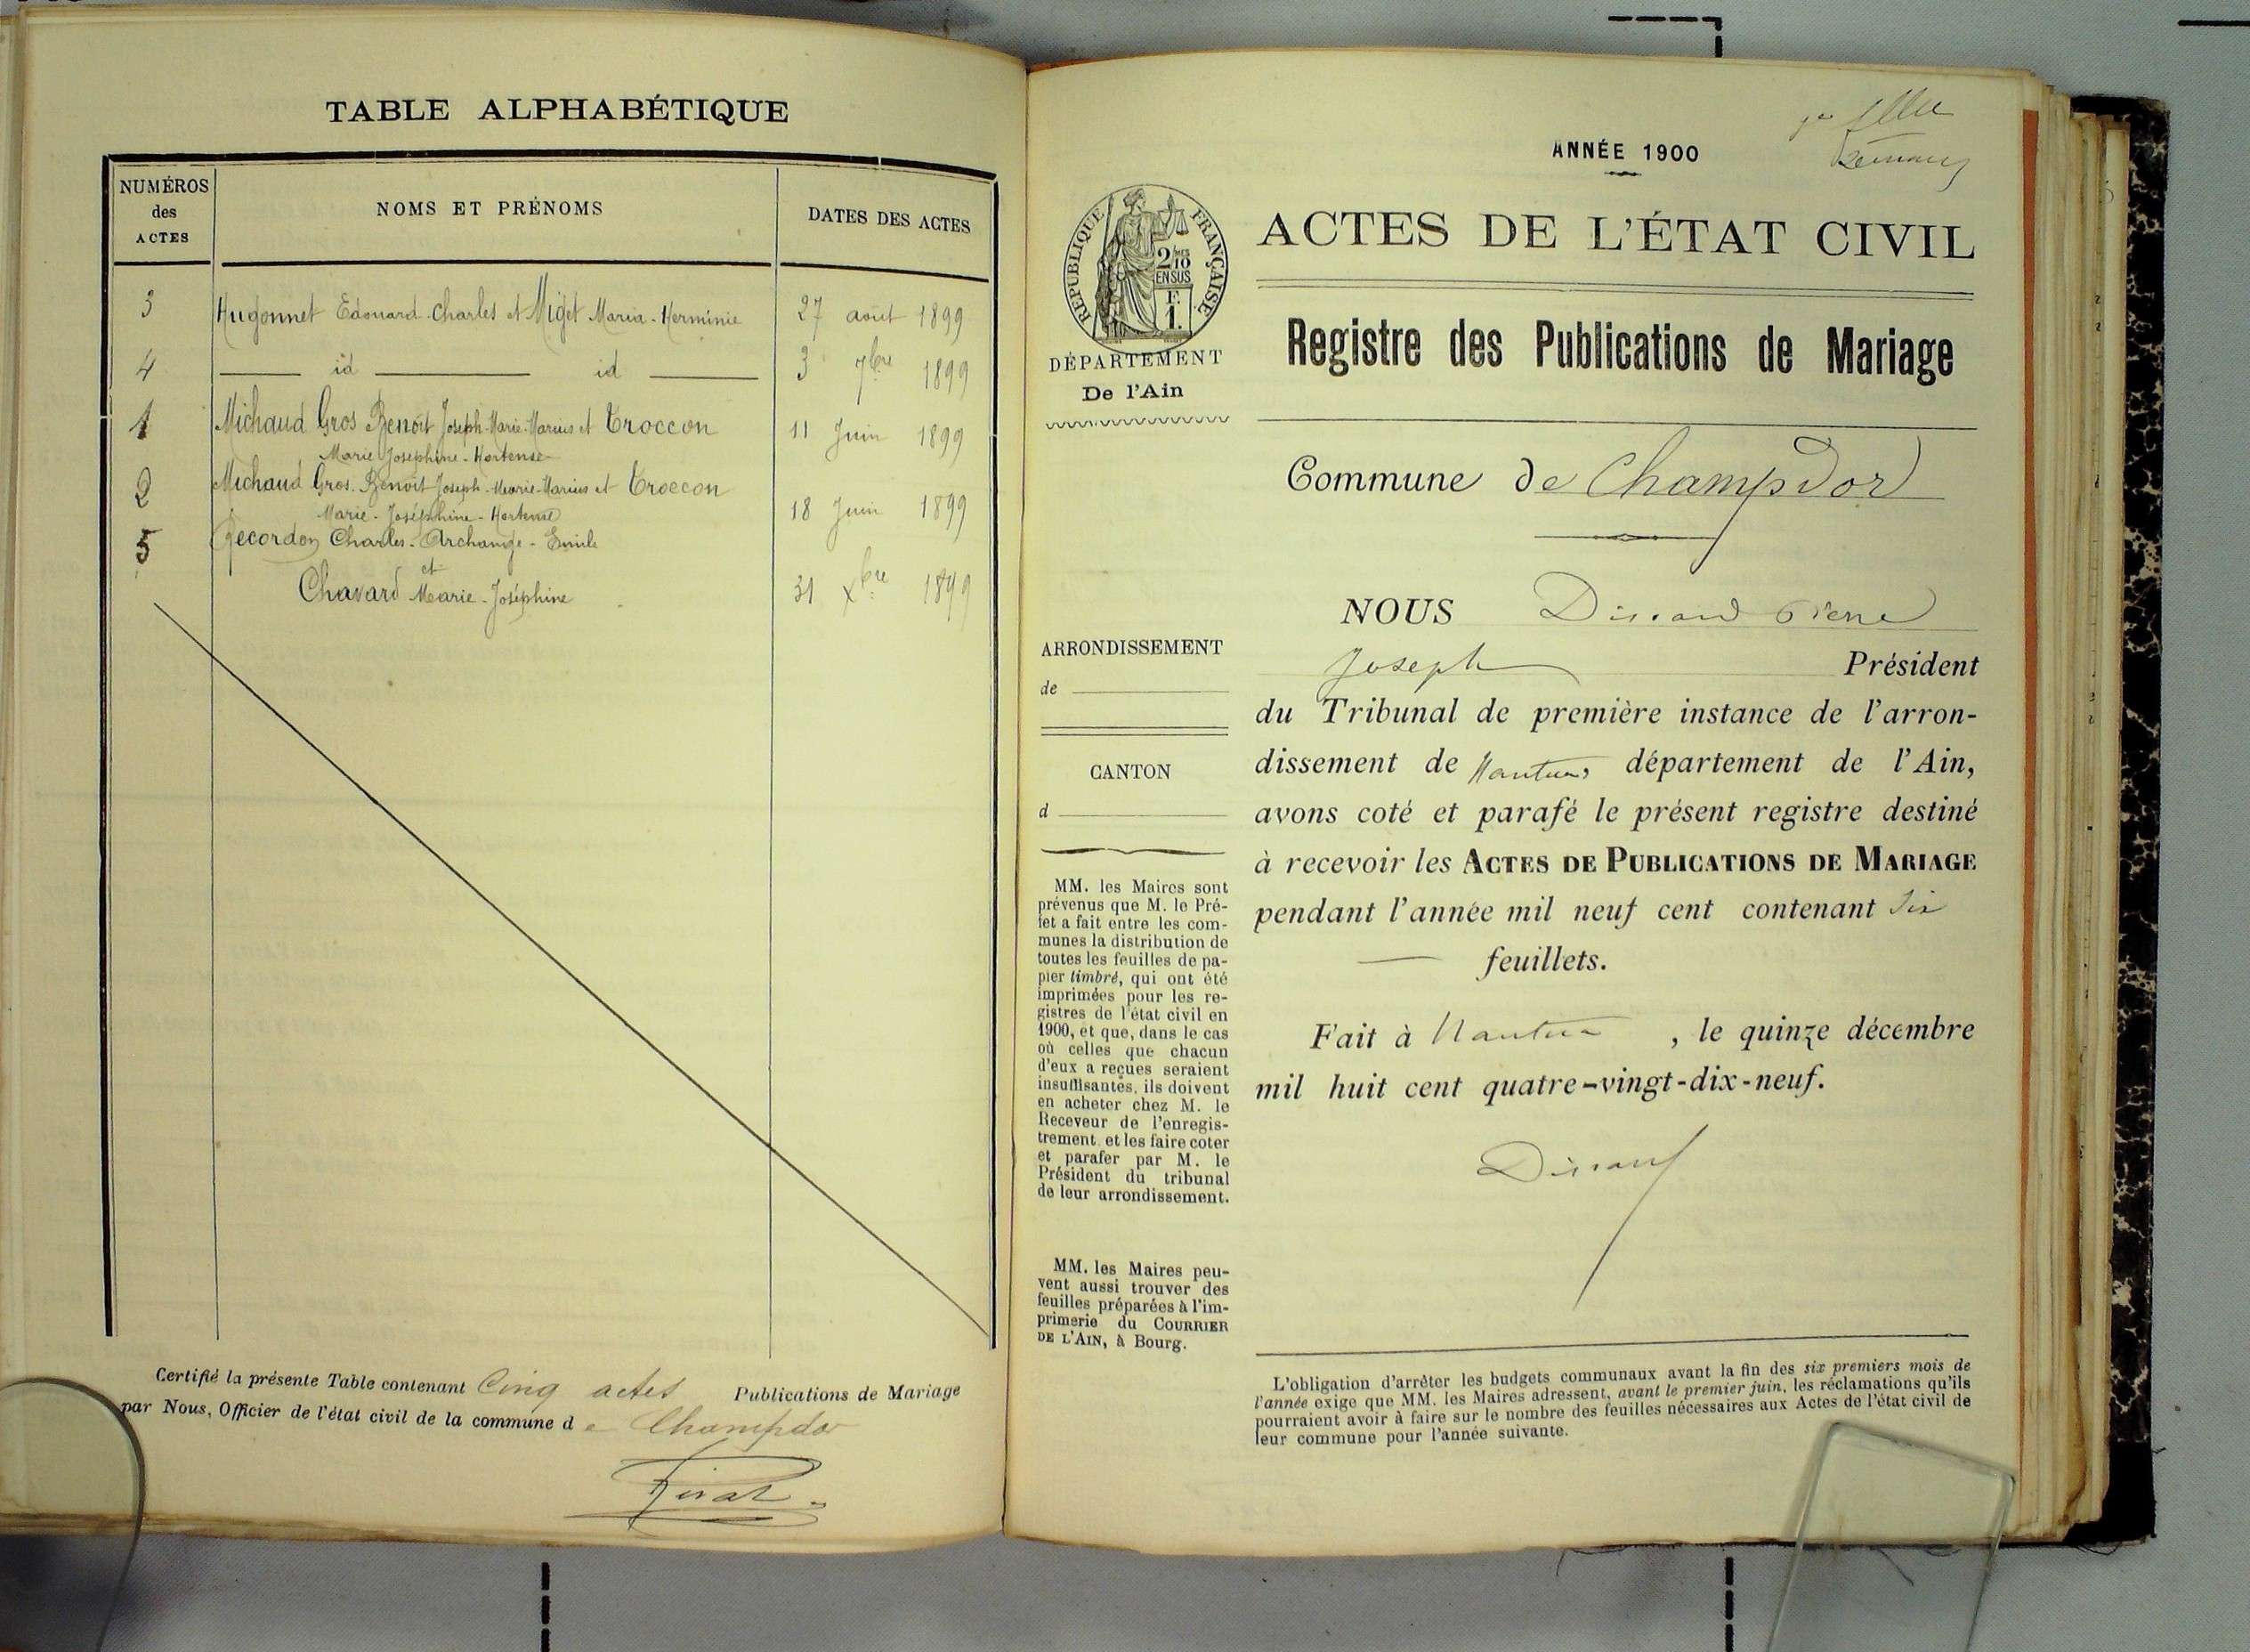 TABLE ALPHABÉTIQUE
NUMÉROS
des
ACTES
NOMS ET PRÉNOMS
DATES DES ACTES
3 Hugonnet Edouard-Charles et Miget Maria-Herminie 27 août 1899
4 id id 3 7bre 1899
1 Michaud Gros Benoît Joseph-Marie-Marius et Troccon 11 Juin 1899
Marie Joséphine-Hortense
2 Michaud Gros Benoît Joseph-Marie-Marius et Troccon
Marie-Joséphine-Hortense 18 Juin 1899
5 Recordon Charles-Archange-Emile
et
Chavard Marie-Joséphine 31 Xbre 1899
Certifié la présente Table contenant Cinq actes Publications de Mariage
par Nous, Officier de l'état civil de la commune de Champdor
ANNÉE 1900
RÉPUBLIQUE FRANÇAISE
2/10
EN SUS
F.
1.
DÉPARTEMENT
De l'Ain
ARRONDISSEMENT
de
CANTON
d
MM. les Maires sont
prévenus que M. le Pré-
fet a fait entre les com-
munes la distribution de
toutes les feuilles de pa-
pier timbré, qui ont été
imprimées pour les re-
gistres de l'état civil en
1900, et que, dans le cas
où celles que chacun
d'eux a reçues seraient
insuffisantes, ils doivent
en acheter chez M. le
Receveur de l'enregis-
trement et les faire coter
et parafer par M. le
Président du tribunal
de leur arrondissement.
MM. les Maires peu-
vent aussi trouver des
feuilles préparées à l'im-
primerie du COURRIER
DE L'AIN, à Bourg.
ACTES DE L'ÉTAT CIVIL
Registre des Publications de Mariage
Commune de Champdor
NOUS Dissard Pierre
Joseph Président
du Tribunal de première instance de l'arron-
dissement de Nantua, département de l'Ain,
avons coté et parafé le présent registre destiné
à recevoir les ACTES DE PUBLICATIONS DE MARIAGE
pendant l'année mil neuf cent contenant Six
feuillets.
Fait à Nantua, le quinze décembre
mil huit cent quatre-vingt-dix-neuf.
Dissard
L'obligation d'arrêter les budgets communaux avant la fin des six premiers mois de
l'année exige que MM. les Maires adressent, avant le premier juin, les réclamations qu'ils
pourraient avoir à faire sur le nombre des feuilles nécessaires aux Actes de l'état civil de
leur commune pour l'année suivante.